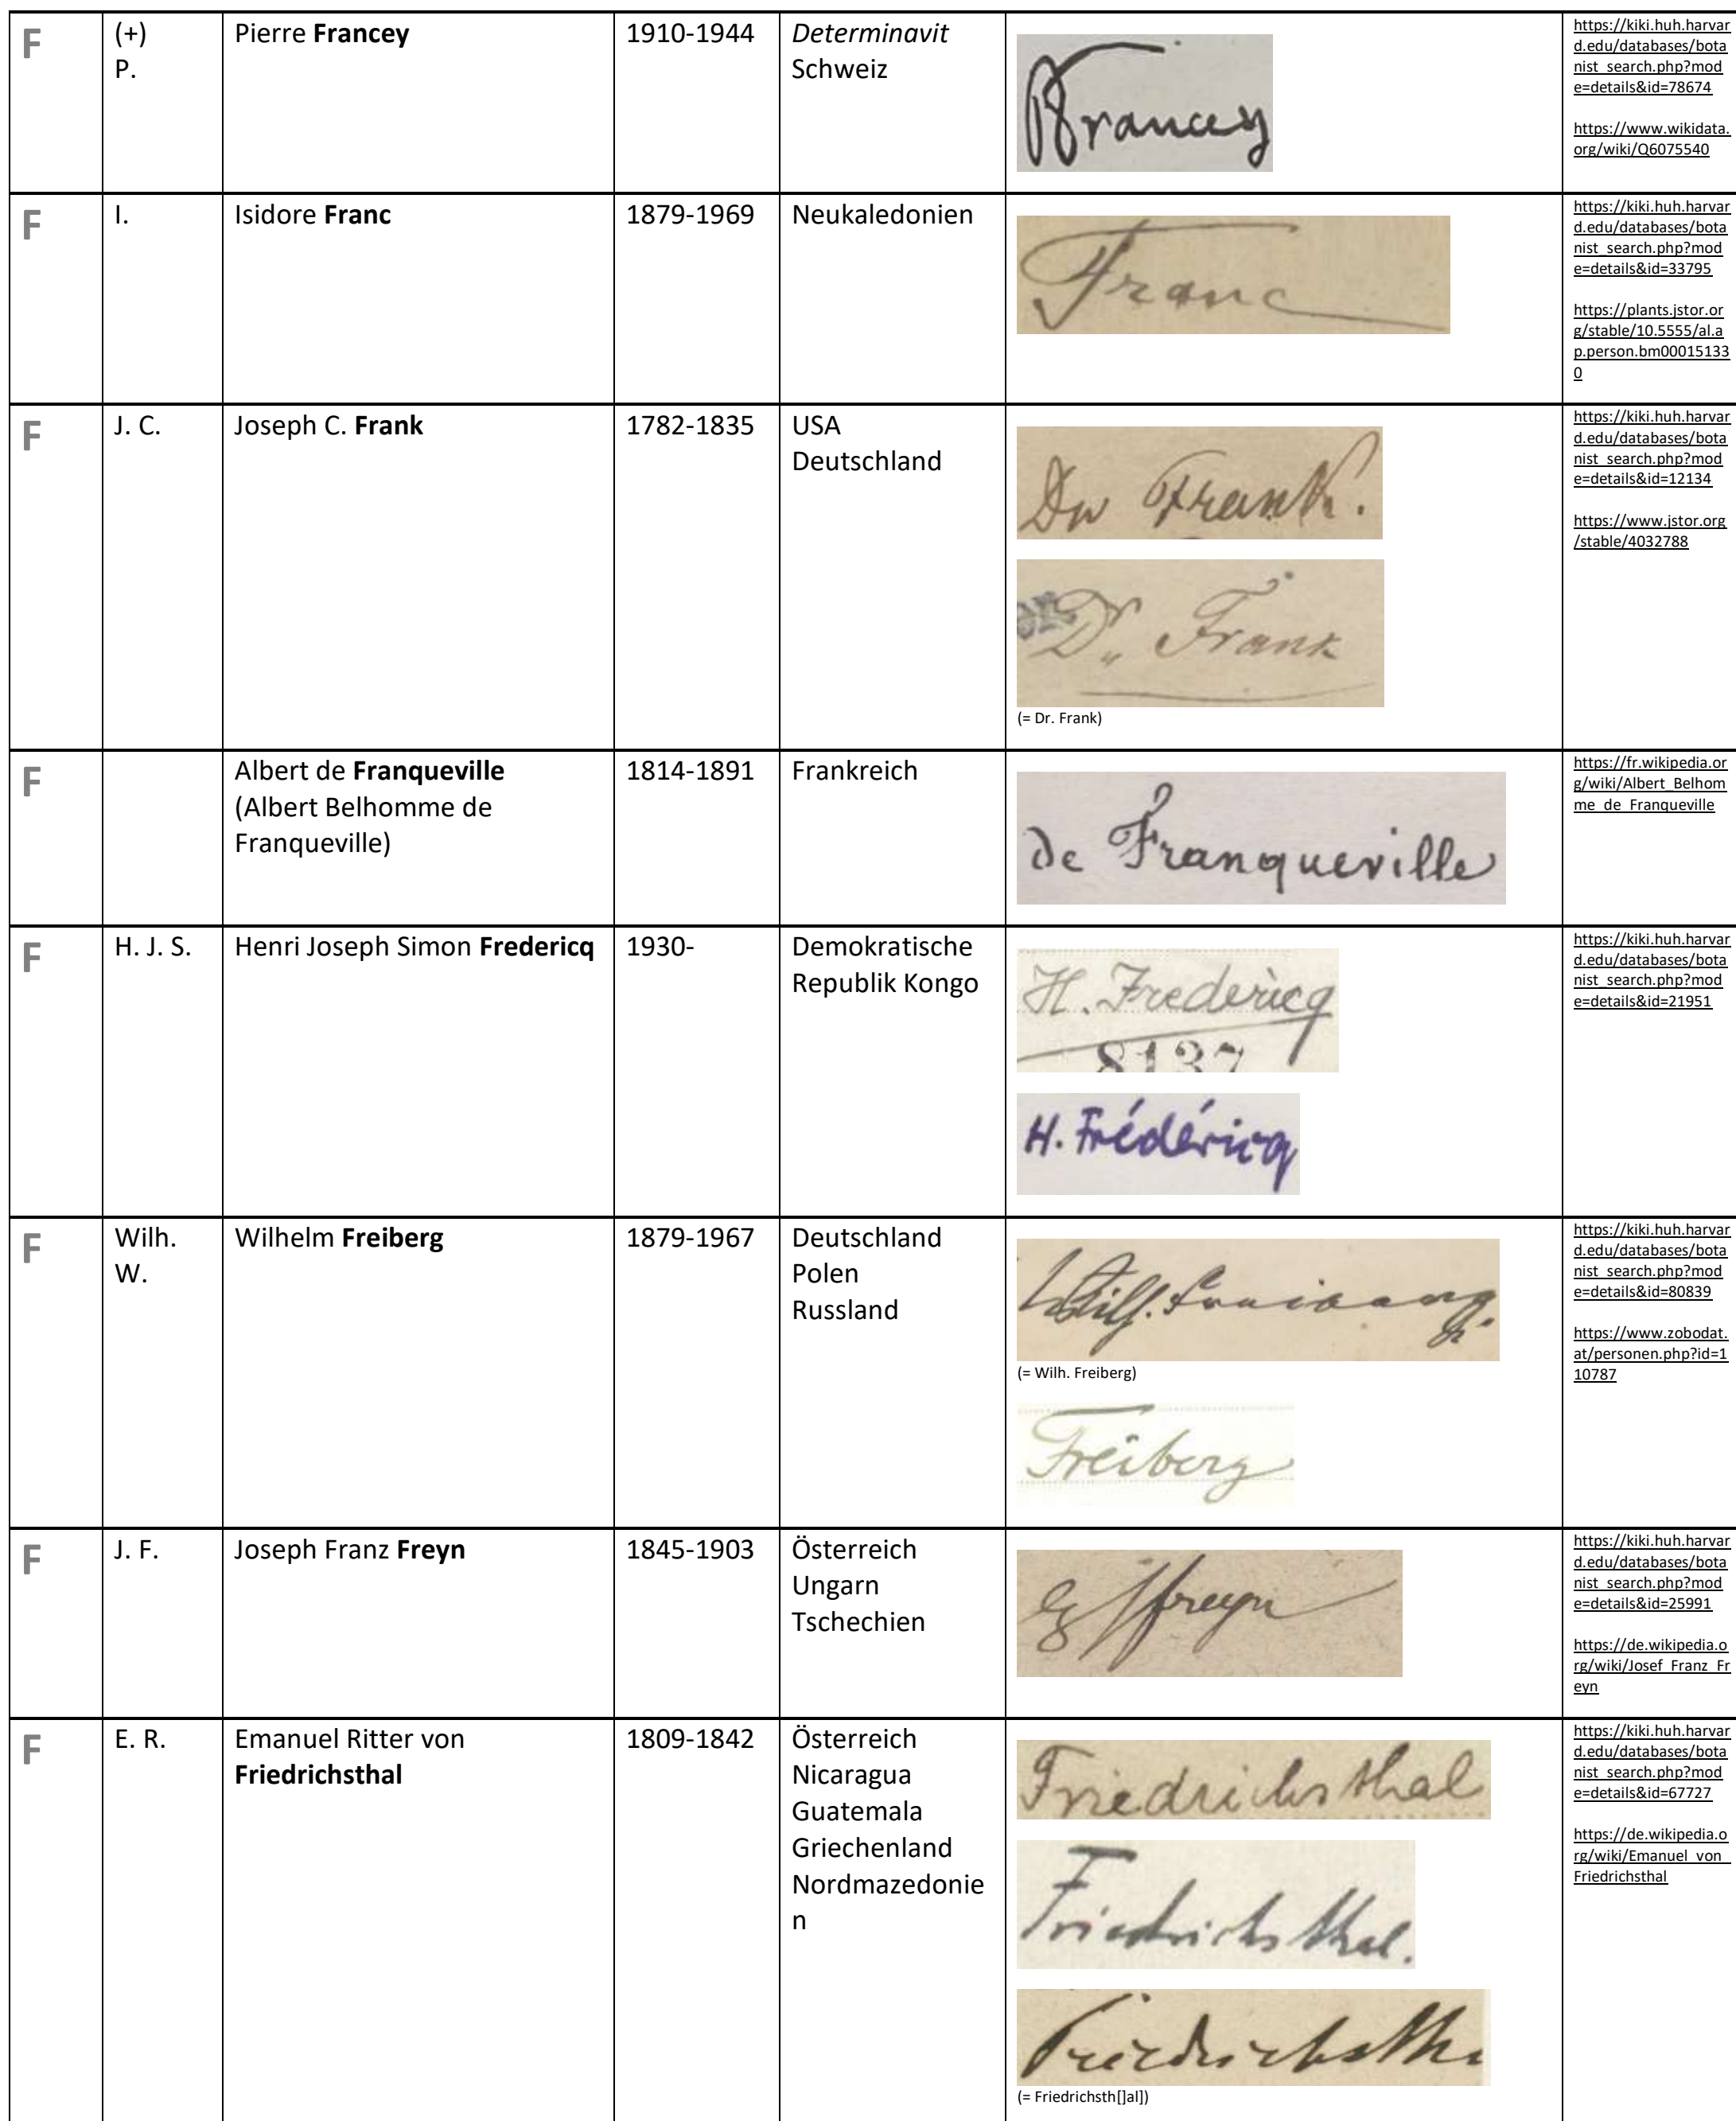 F
(+)
P.
Pierre Francey
1910-1944
Determinavit
Schweiz
PFrancey
https://kiki.huh.harvar
d.edu/databases/bota
nist_search.php?mod
e=details&id=78674
https://www.wikidata.
org/wiki/Q6075540
F
I.
Isidore Franc
1879-1969
Neukaledonien
Franc
https://kiki.huh.harvar
d.edu/databases/bota
nist_search.php?mod
e=details&id=33795
https://plants.jstor.or
g/stable/10.5555/al.a
p.person.bm00015133
0
F
J. C.
Joseph C. Frank
1782-1835
USA
Deutschland
Dr Frank.
Dr. Frank
(= Dr. Frank)
https://kiki.huh.harvar
d.edu/databases/bota
nist_search.php?mod
e=details&id=12134
https://www.jstor.org
/stable/4032788
F
Albert de Franqueville
(Albert Belhomme de
Franqueville)
1814-1891
Frankreich
de Franqueville
https://fr.wikipedia.or
g/wiki/Albert_Belhom
me_de_Franqueville
F
H. J. S.
Henri Joseph Simon Fredericq
1930-
Demokratische
Republik Kongo
H. Fredericq
8137
H. Frédéricq
https://kiki.huh.harvar
d.edu/databases/bota
nist_search.php?mod
e=details&id=21951
F
Wilh.
W.
Wilhelm Freiberg
1879-1967
Deutschland
Polen
Russland
Wilh. Freiberg.
(= Wilh. Freiberg)
Freiberg
https://kiki.huh.harvar
d.edu/databases/bota
nist_search.php?mod
e=details&id=80839
https://www.zobodat.
at/personen.php?id=1
10787
F
J. F.
Joseph Franz Freyn
1845-1903
Österreich
Ungarn
Tschechien
Freyn
https://kiki.huh.harvar
d.edu/databases/bota
nist_search.php?mod
e=details&id=25991
https://de.wikipedia.o
rg/wiki/Josef_Franz_Fr
eyn
F
E. R.
Emanuel Ritter von
Friedrichsthal
1809-1842
Österreich
Nicaragua
Guatemala
Griechenland
Nordmazedonie
n
Friedrichsthal
Friedrichsthal.
Friedrichsth
(= Friedrichsth[]al])
https://kiki.huh.harvar
d.edu/databases/bota
nist_search.php?mod
e=details&id=67727
https://de.wikipedia.o
rg/wiki/Emanuel_von_
Friedrichsthal